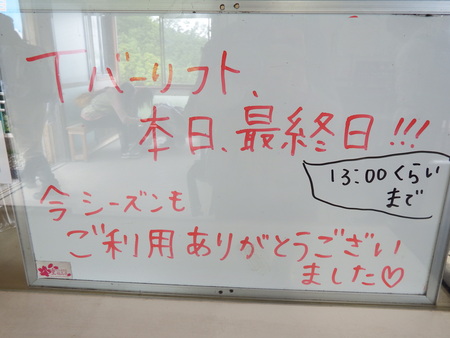 Tバーリフト、
本日、最終日!!!
13:00くらい
まで
今シーズンも
ご利用ありがとうござい
ました♡